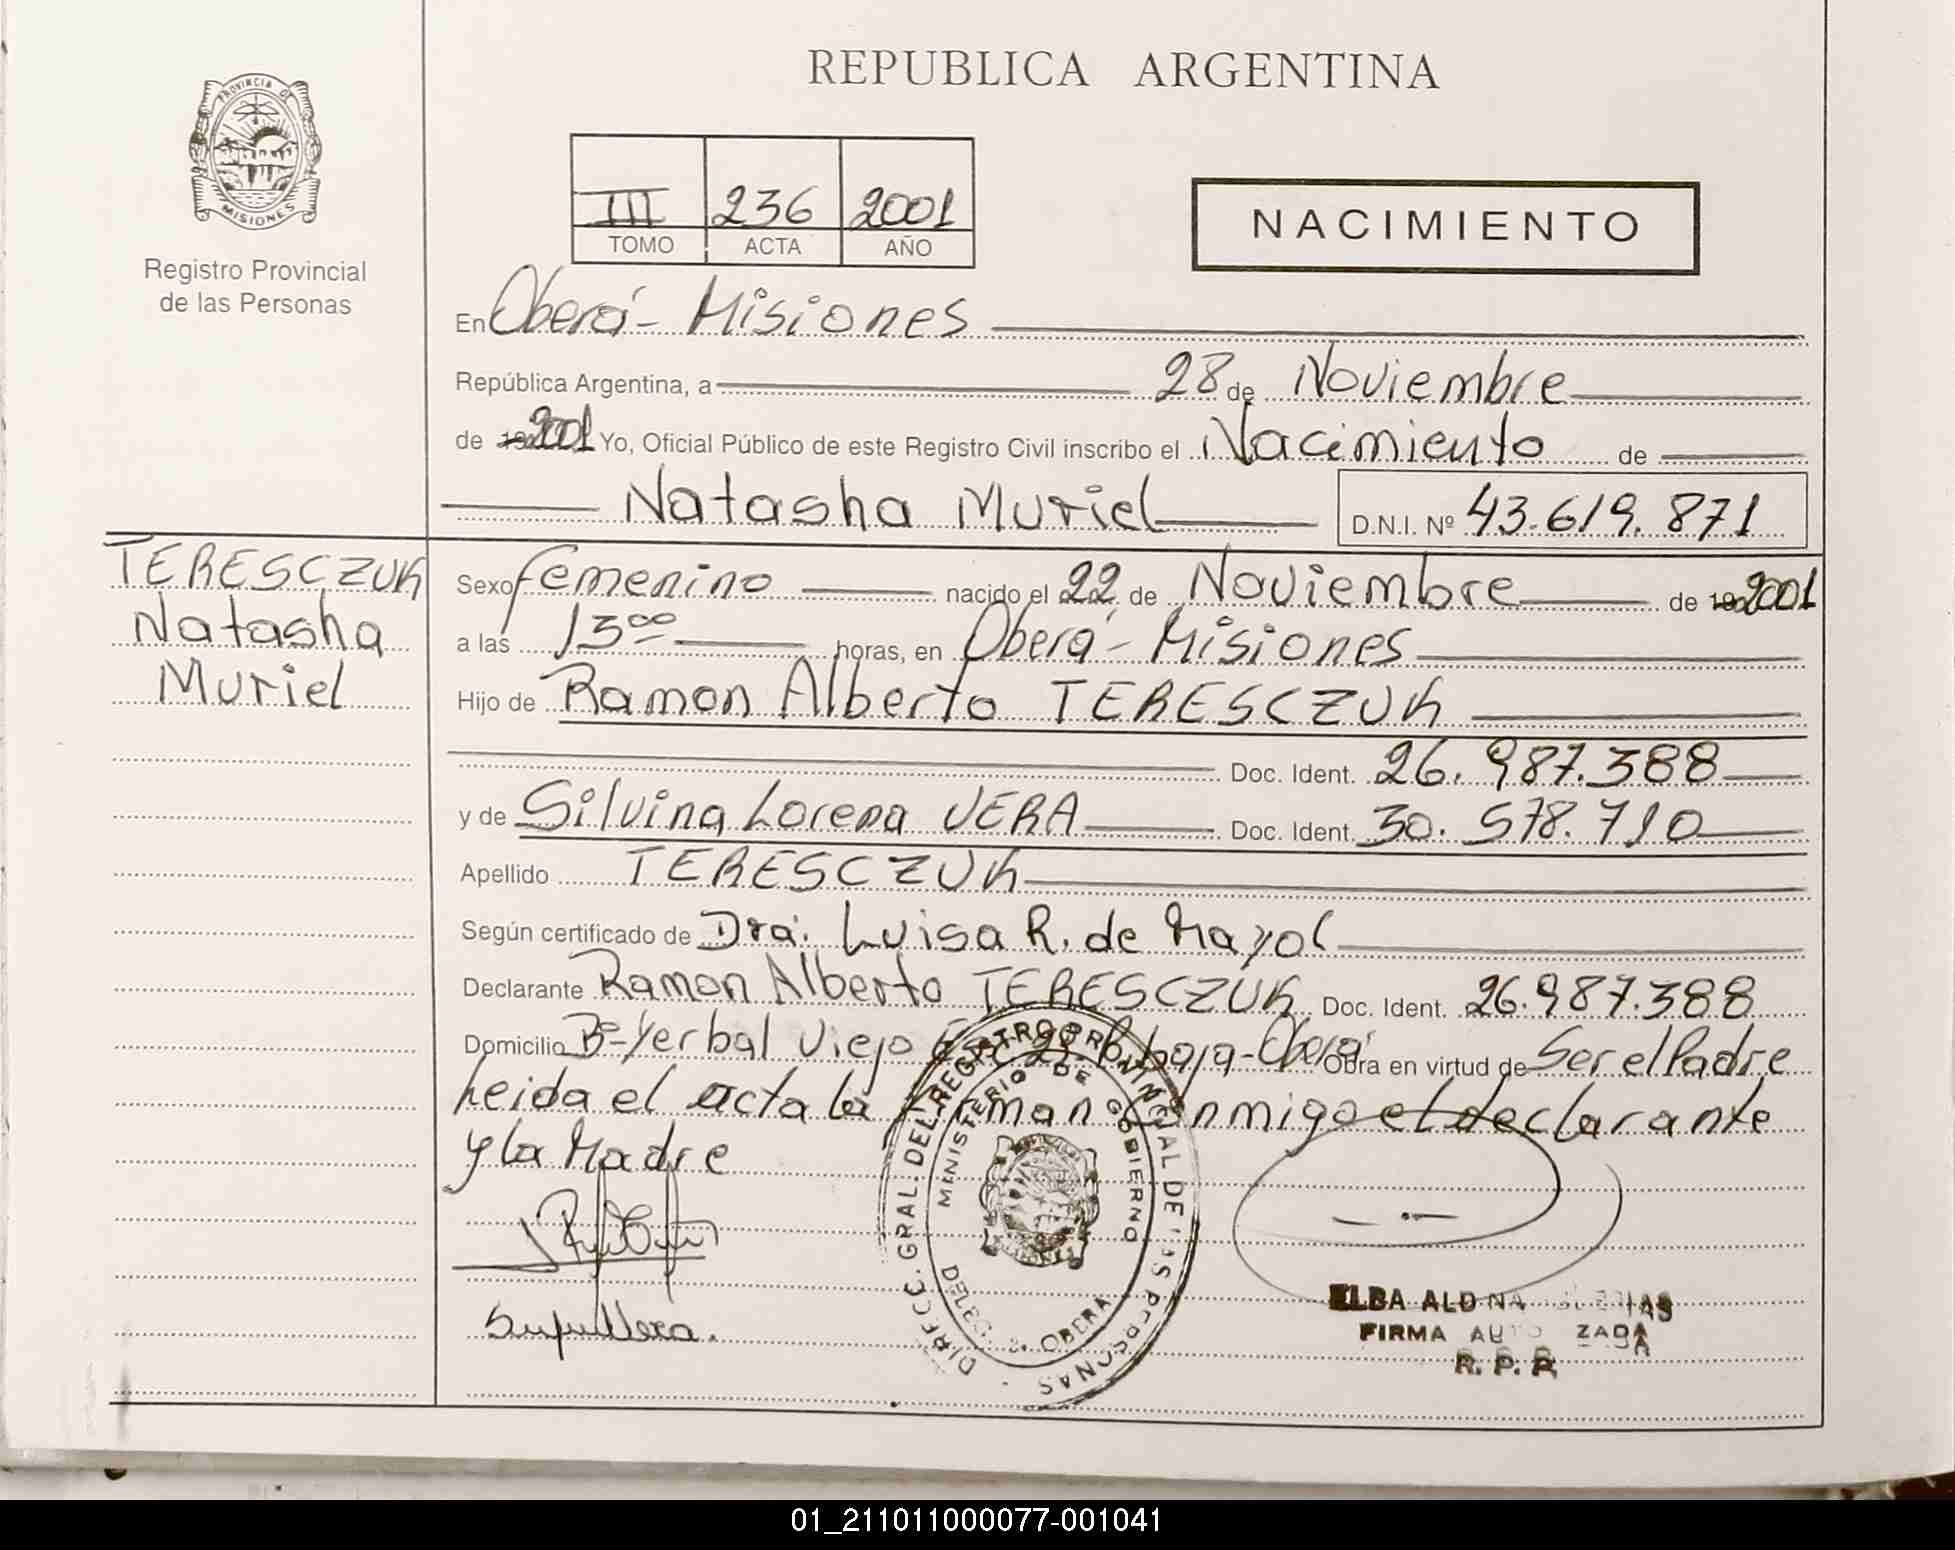 PROVINCIA DE
MISIONES
Registro Provincial
de las Personas
REPUBLICA ARGENTINA
III 236 2001
TOMO ACTA AÑO
NACIMIENTO
En Oberá - Misiones
República Argentina, a 28 de Noviembre
de 2001 Yo, Oficial Público de este Registro Civil inscribo el Nacimiento de
Natasha Muriel D.N.I. Nº 43.619.871
TERESCZUK
Natasha
Muriel
Sexo femenino nacido el 22 de Noviembre de 2001
a las 13⁰⁰ horas, en Oberá - Misiones
Hijo de Ramon Alberto TERESCZUK
Doc. Ident. 26.987.388
y de Silvina Lorena VERA Doc. Ident. 30.578.710
Apellido TERESCZUK
Según certificado de Dra. Luisa R. de Mayol
Declarante Ramon Alberto TERESCZUK Doc. Ident. 26.987.388
Domicilio Bº Yerbal Viejo Obra en virtud de Ser el Padre
Leida el acta la firman conmigo el declarante
y la Madre
DIRECC. GRAL. DEL REGISTRO PROVINCIAL DE LAS PERSONAS
MINISTERIO DE GOBIERNO
OBERA
ELBA
FIRMA AUTORIZADA
R. P. P.
01_211011000077-001041